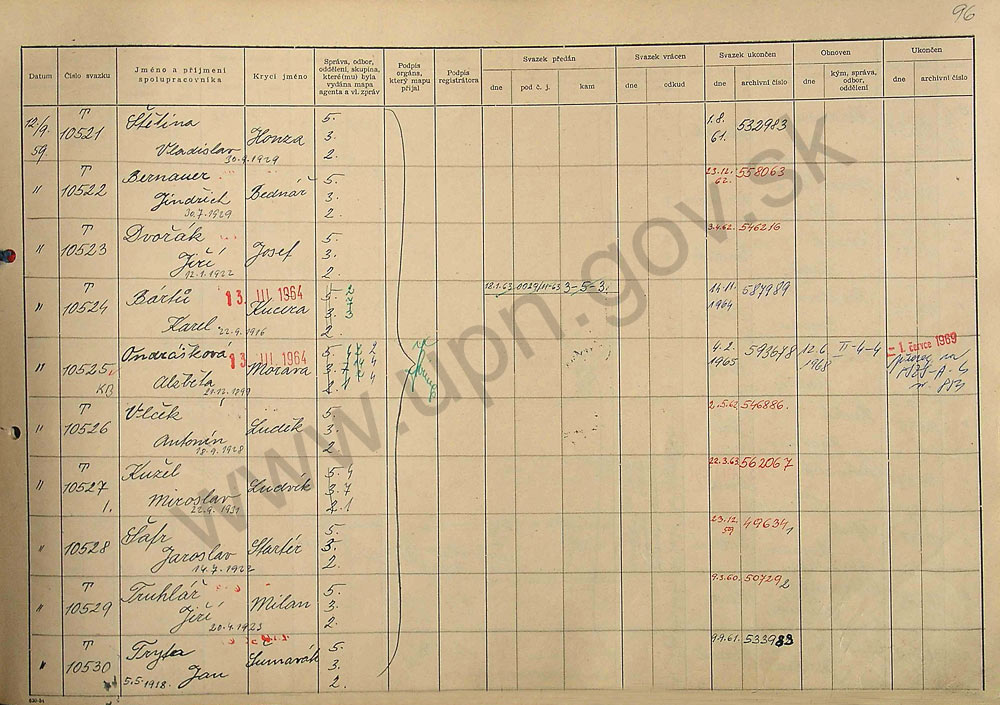 96
Datum
Číslo svazku
Jméno a příjmení
spolupracovníka
Krycí jméno
Správa, odbor,
oddělení, skupina,
které(mu) byla
vydána mapa
agenta a vl. zpráv
Podpis
orgánu,
který mapu
přijal
Podpis
registrátora
Svazek předán
dne
pod č. j.
kam
Svazek vrácen
dne
odkud
Svazek ukončen
dne
archivní číslo
Obnoven
dne
kým, správa,
odbor,
oddělení
Ukončen
dne
archivní číslo
12/9. 59. T 10521 Štětina Vladislav 30.9.1929 Honza 5. 3. 2. 1.8. 61. 532983
" T 10522 Bernauer Jindřich 30.7.1929 Bednář 5. 3. 2. 23.12. 62. 558063
" T 10523 Dvořák Jiří 12.1.1922 Josef 5. 3. 2. 3.4.62. 546216
" T 10524 Bártů Karel 22.9.1916 13. III 1964 Kučera 5. 3. 2. 18.1.63. 0029/11-63 3-5-3. 14.11. 1964 587989
" T 10525 KB Ondrášková Alžběta 21.12.1899 13. III 1964 Morava 5. 3. 2. 4.2. 1965 593678 12.6. 1968 II-4-4 - 1. července 1969
" T 10526 Vlček Antonín 18.9.1928 Luděk 5. 3. 2. 2.5.62. 546886.
" T 10527 1. Kužel Miroslav 22.9.1931 Ludvík 5. 4 3. 7 2. 1 22.3.63 562067
" T 10528 Šafr Jaroslav 14.7.1922 Startér 5. 3. 2. 23.12. 59 49634
" T 10529 Truhlář Jiří 20.4.1923 Milan 5. 3. 2. 9.3.60. 50729
" T 10530 Tryta Jan 5.5.1918. Šumavák 5. 3. 2. 9.9.61. 533983
www.upn.gov.sk